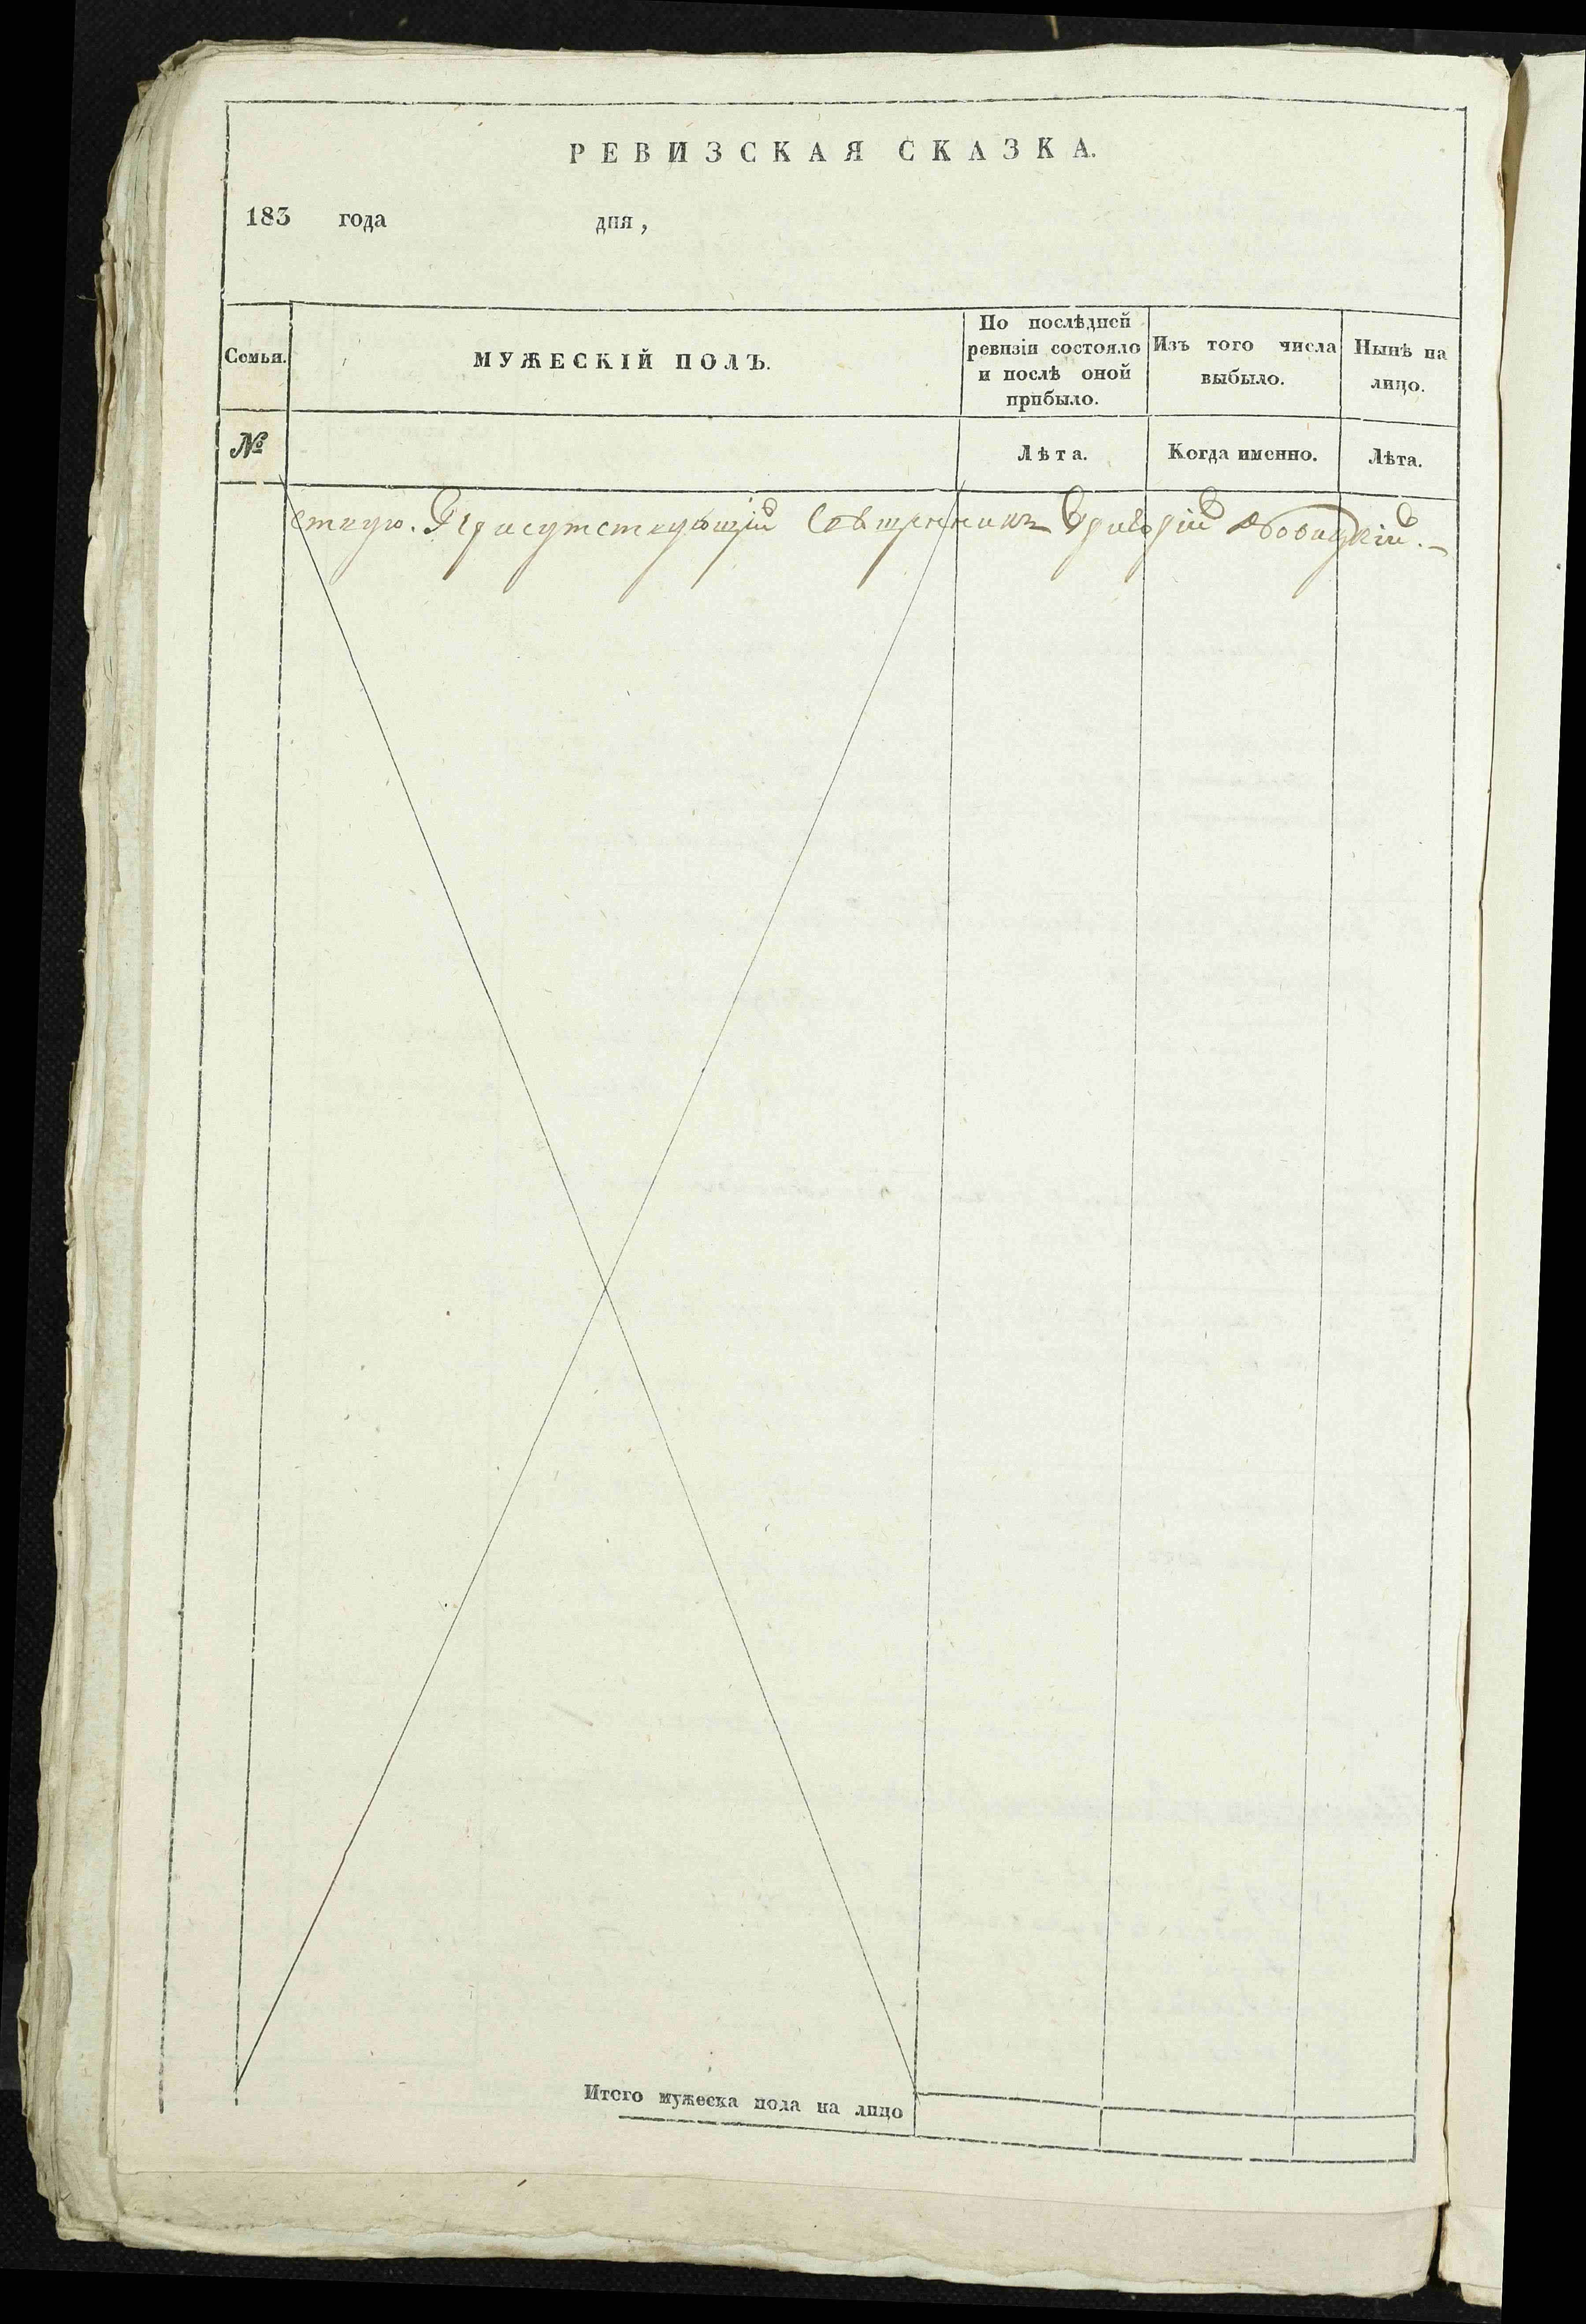 РЕВИЗСКАЯ СКАЗКА.
183 года дня,
Семьи.
МУЖЕСКІЙ ПОЛЪ.
По послѣдней ревизіи состояло и послѣ оной прибыло.
Изъ того числа выбыло.
Нынѣ на лицо.
№
Лѣта.
Когда именно.
Лѣта.
ствую. Присутствующій Священникъ Григорій Новицкій.
Итого мужеска пола на лицо